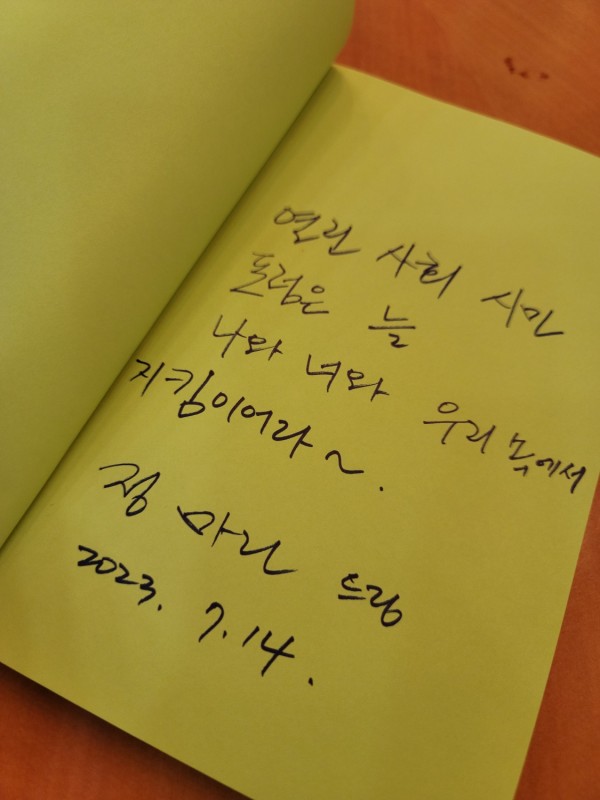 열린 사회 시민
포럼은 늘
나와 너와 우리
지킴이어라~.
정 드림
2023. 7.14.